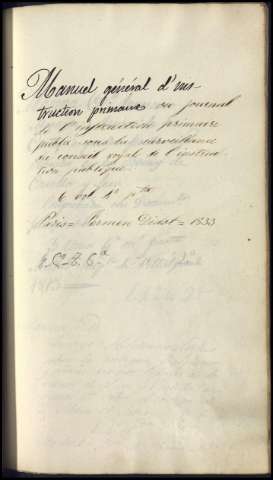 Manuel général d'ins-
truction primaire ou journal
de l'instruction primaire
publié sous la surveillance
du conseil royal de l'instruc-
tion publique
6 vol 4º
Paris = Firmin Didot = 1833